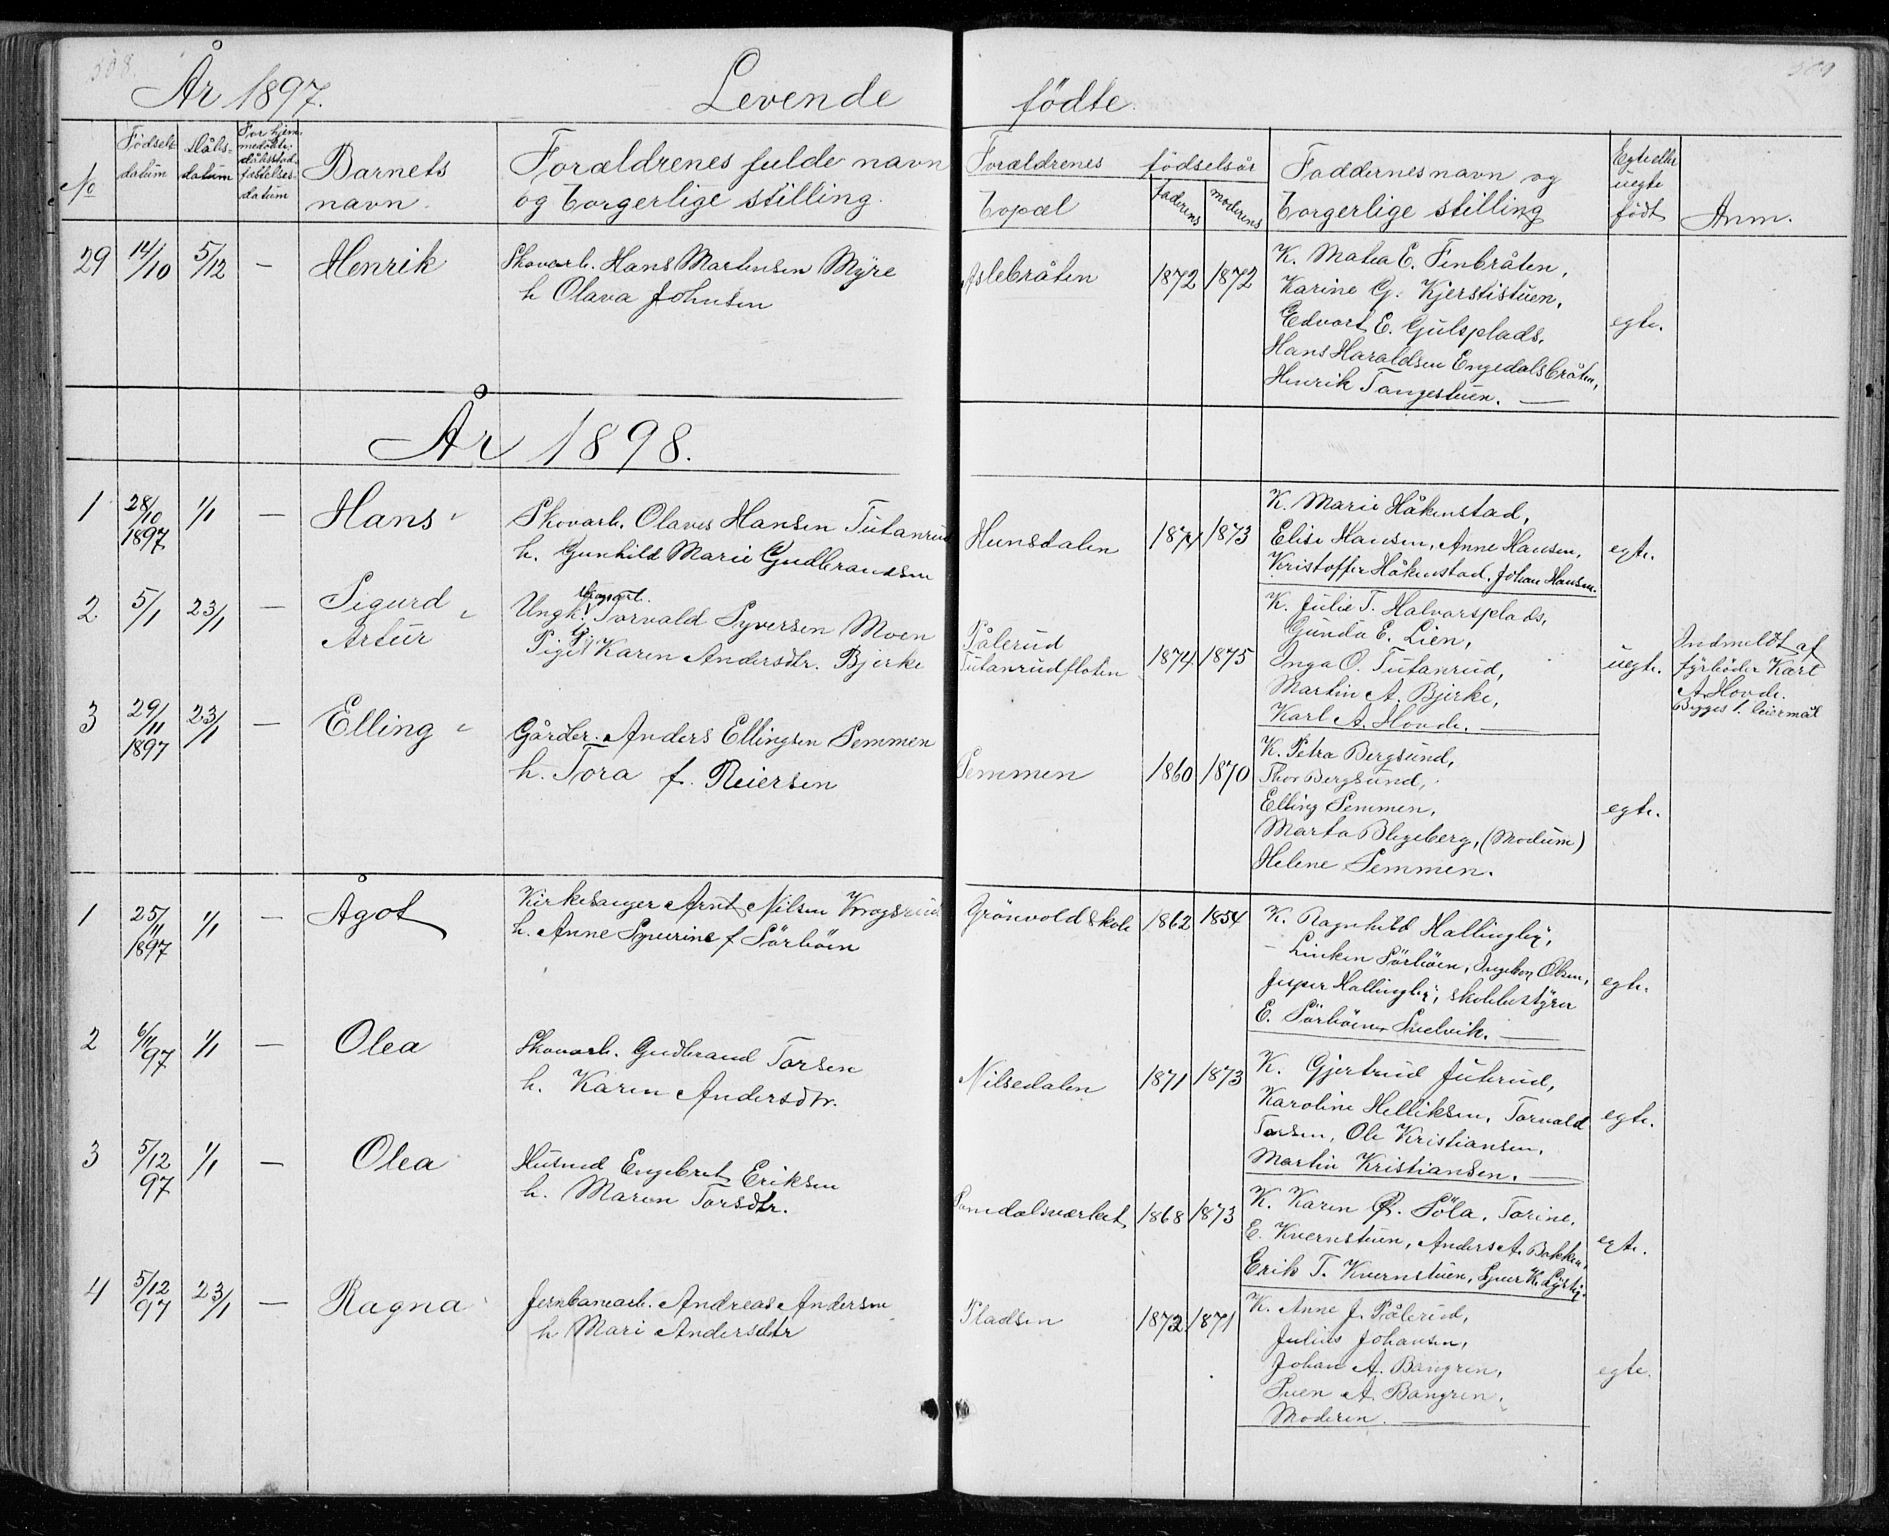 508.
År 1897. Levende fødte. 509
No
Fødsels-
datum
Dåbs-
datum
For hjem-
medøbte:
dåbsstad-
festelses-
datum
Barnets
navn.
Forældrenes fulde navn
og borgerlige stilling.
Forældrenes fødselsår
bopæl
faderens
moderens
Faddernes navn og
borgerlige stilling
Egte eller
uegte
født
Anm.
29 14/10 5/12 — Henrik Skovarb. Hans Martensen Myre
h Olava Johnsen
Aslebråten 1872 1872
K. Matea E. Finbråten,
Karine G. Kjerstistuen,
Edvart E. Gulsplads,
Hans Haraldsen Engedalsbråten,
Henrik Tangestuen. —
egte.
År 1898.
1 28/10 1897 1/1 — Hans Skovarb. Olaves Hansen Tutanrud
h. Gunhild Marie Gudbrandsen
Hunsdalen 1871 1873
K. Marie Håkenstad,
Elise Hansen, Anne Hansen,
Kristoffer Håkenstad, Johan Hansen.
egte.
2 5/1 23/1 — Sigurd
Artur
Ungk. Torvald Syversen Moen
Pige Karen Andersdtr. Bjerke
Pålerud
Tutanrudfloten 1874 1875
K. Julie T. Halvarsplads,
Gunda E. Lien,
Inga O. Tutanrud,
Martin A. Bjerke,
Karl A. Hovde. —
uegte.
Indmeldt af
fyrbøder Karl
A. Hovde.
Begges 1. leiermål
3 29/11 1897 23/1 — Elling Gårdbr. Anders Ellingsen Semmen
h. Tora f. Reiersen
Semmen 1860 1870
K. Petra Bergsund,
Thor Bergsund,
Elling Semmen,
Marta Blegeberg, (Modum)
Helene Semmen.
egte.
1 25/11 1897 1/1 — Ågot Kirkesanger Arnt Nilsen Krogsrud
h. Anne Syverine f Sörbøen
Grönvold skole 1862 1854
K. Ragnhild Hallingby,
— Linken Sörbøen, Ingeborg Olsen,
Jesper Hallingby, skolebestyrer
E. Sörbøen Svelvik. —
egte.
2 6/11 97 1/1 — Olea Skovarb. Gudbrand Torsen
h. Karen Andersdtr.
Nilsedalen 1871 1873
K. Gjertrud Juterud,
Karoline Helliksen, Torvald
Torsen, Ole Kristiansen,
Martin Kristiansen. —
egte.
3 5/12 97 1/1 — Olea Husmd Engebret Eriksen
h. Maren Torsdtr.
Somdalsværket 1868 1873
K. Karen Ø. Söla, Torine
E. Kvernstuen, Anders A. Bakken,
Erik T. Kvernstuen, Syver K.
egte.
4 5/12 97 23/1 — Ragna Jernbanearb. Andreas Andersen
h Mari Andersdtr
Pladsen 1872 1871
K. Anne J. Pålerud,
Julius Johansen,
Johan A. Bangren,
Sven A. Bangren.
Moderen. —
egte.